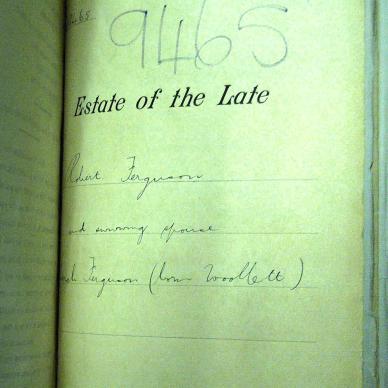 9465
Estate of the Late
Robert Ferguson
and surviving spouse
Ferguson (born Woollett)